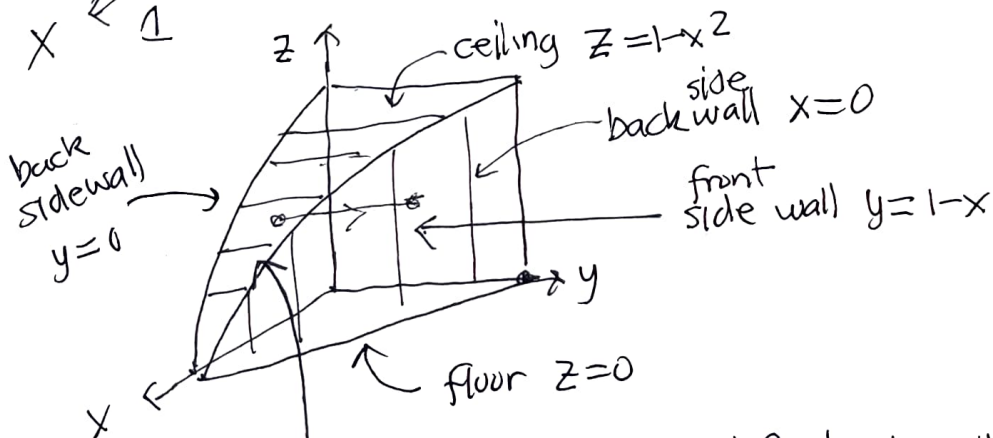 X
1
z
ceiling z = 1-x²
side
back wall x=0
back
sidewall
y=0
front
side wall y= 1-x
y
floor z=0
X